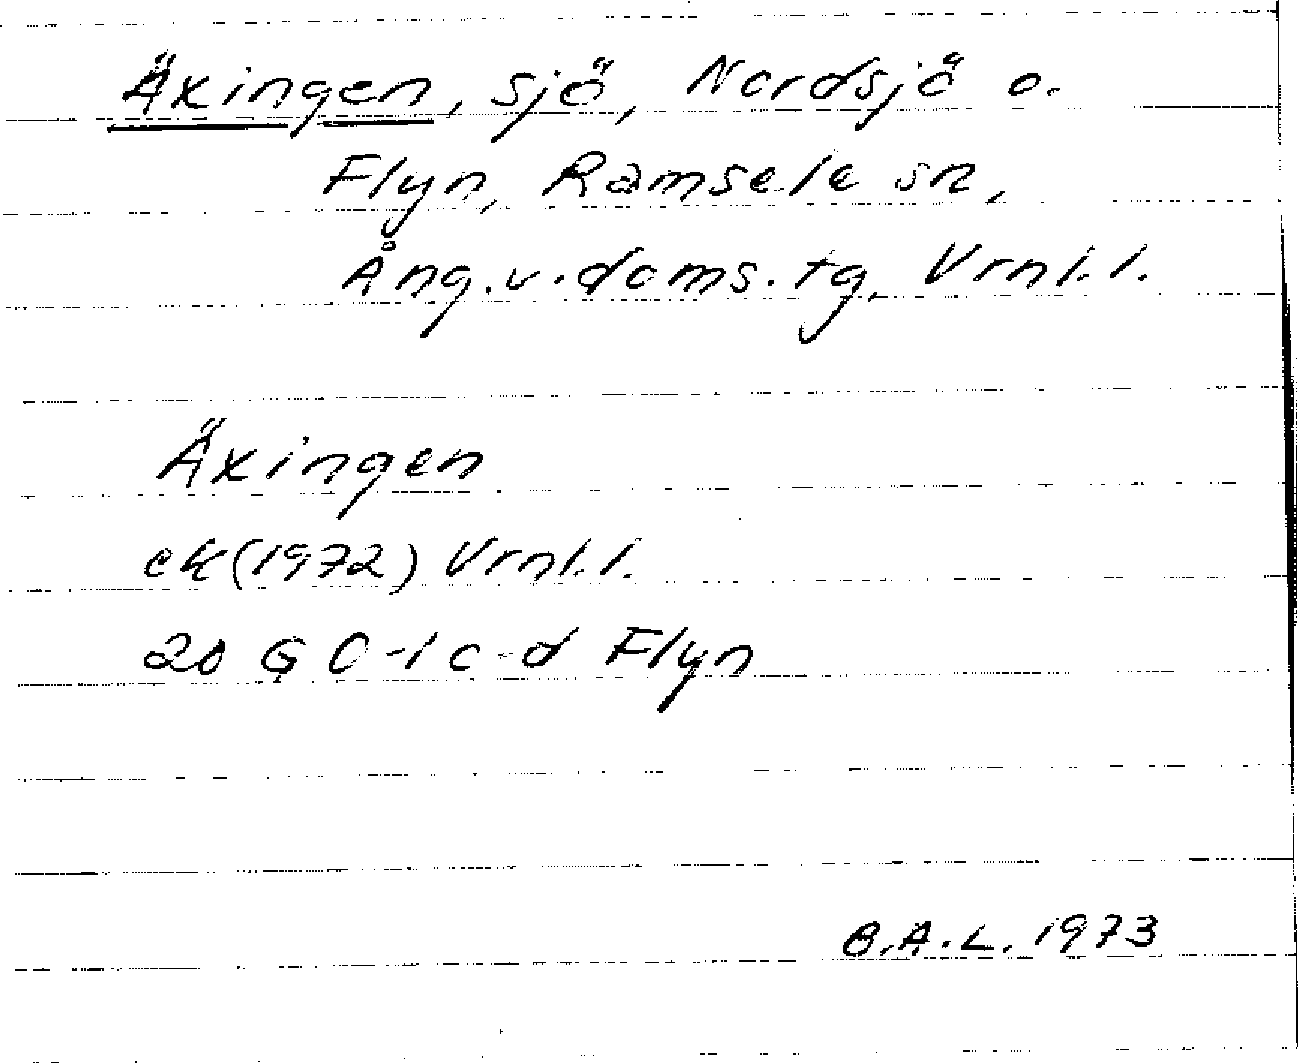 Äxingen, sjö, Nordsjö o.
Flyn, Ramsele sn,
Ång.v.doms.tg, Vrnl.l.
Äxingen
ek(1972) Vrnl.l.
20 G 0-1 c-d Flyn
B.A.L. 1973